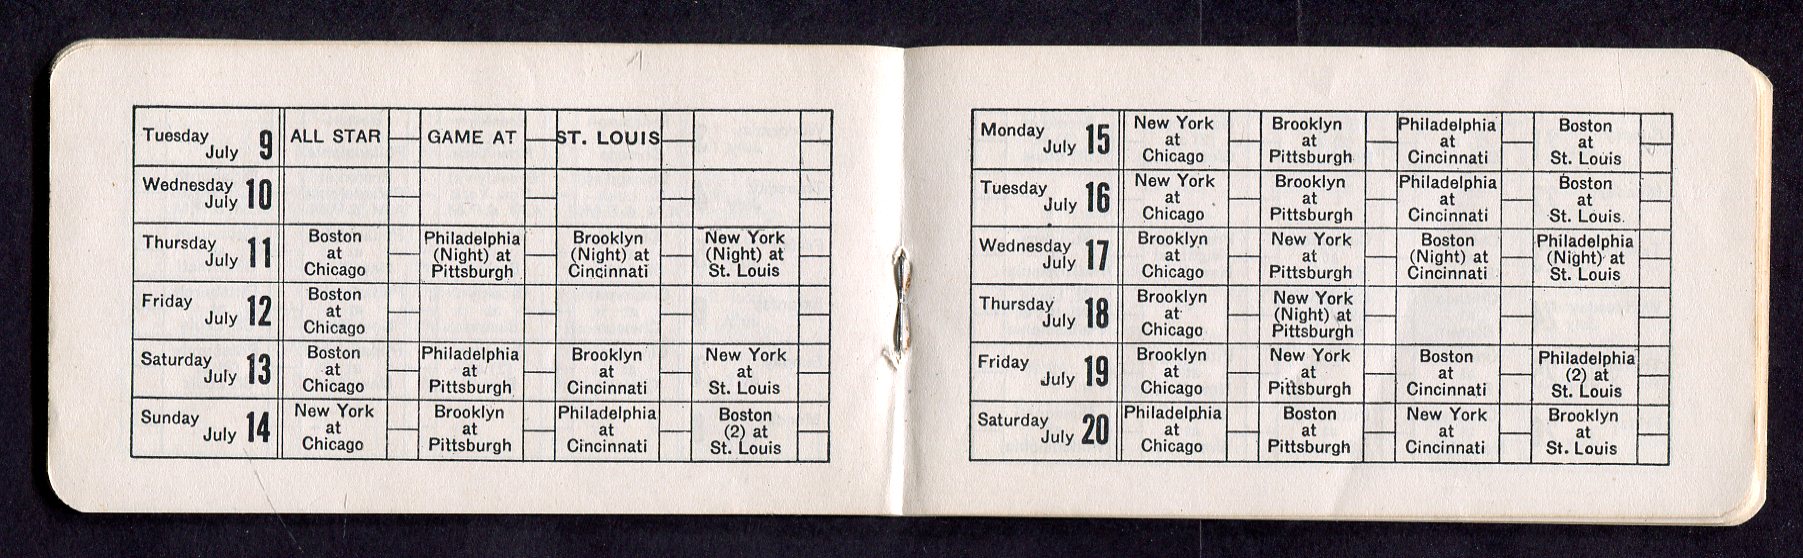 Tuesday July 9 ALL STAR GAME AT ST. LOUIS
Wednesday July 10
Thursday July 11
Boston at Chicago
Philadelphia (Night) at Pittsburgh
Brooklyn (Night) at Cincinnati
New York (Night) at St. Louis
Friday July 12
Boston at Chicago
Saturday July 13
Boston at Chicago
Philadelphia at Pittsburgh
Brooklyn at Cincinnati
New York at St. Louis
Sunday July 14
New York at Chicago
Brooklyn at Pittsburgh
Philadelphia at Cincinnati
Boston (2) at St. Louis
Monday July 15
New York at Chicago
Brooklyn at Pittsburgh
Philadelphia at Cincinnati
Boston at St. Louis
Tuesday July 16
New York at Chicago
Brooklyn at Pittsburgh
Philadelphia at Cincinnati
Boston at St. Louis.
Wednesday July 17
Brooklyn at Chicago
New York at Pittsburgh
Boston (Night) at Cincinnati
Philadelphia (Night) at St. Louis
Thursday July 18
Brooklyn at Chicago
New York (Night) at Pittsburgh
Friday July 19
Brooklyn at Chicago
New York at Pittsburgh
Boston at Cincinnati
Philadelphia (2) at St. Louis
Saturday July 20
Philadelphia at Chicago
Boston at Pittsburgh
New York at Cincinnati
Brooklyn at St. Louis